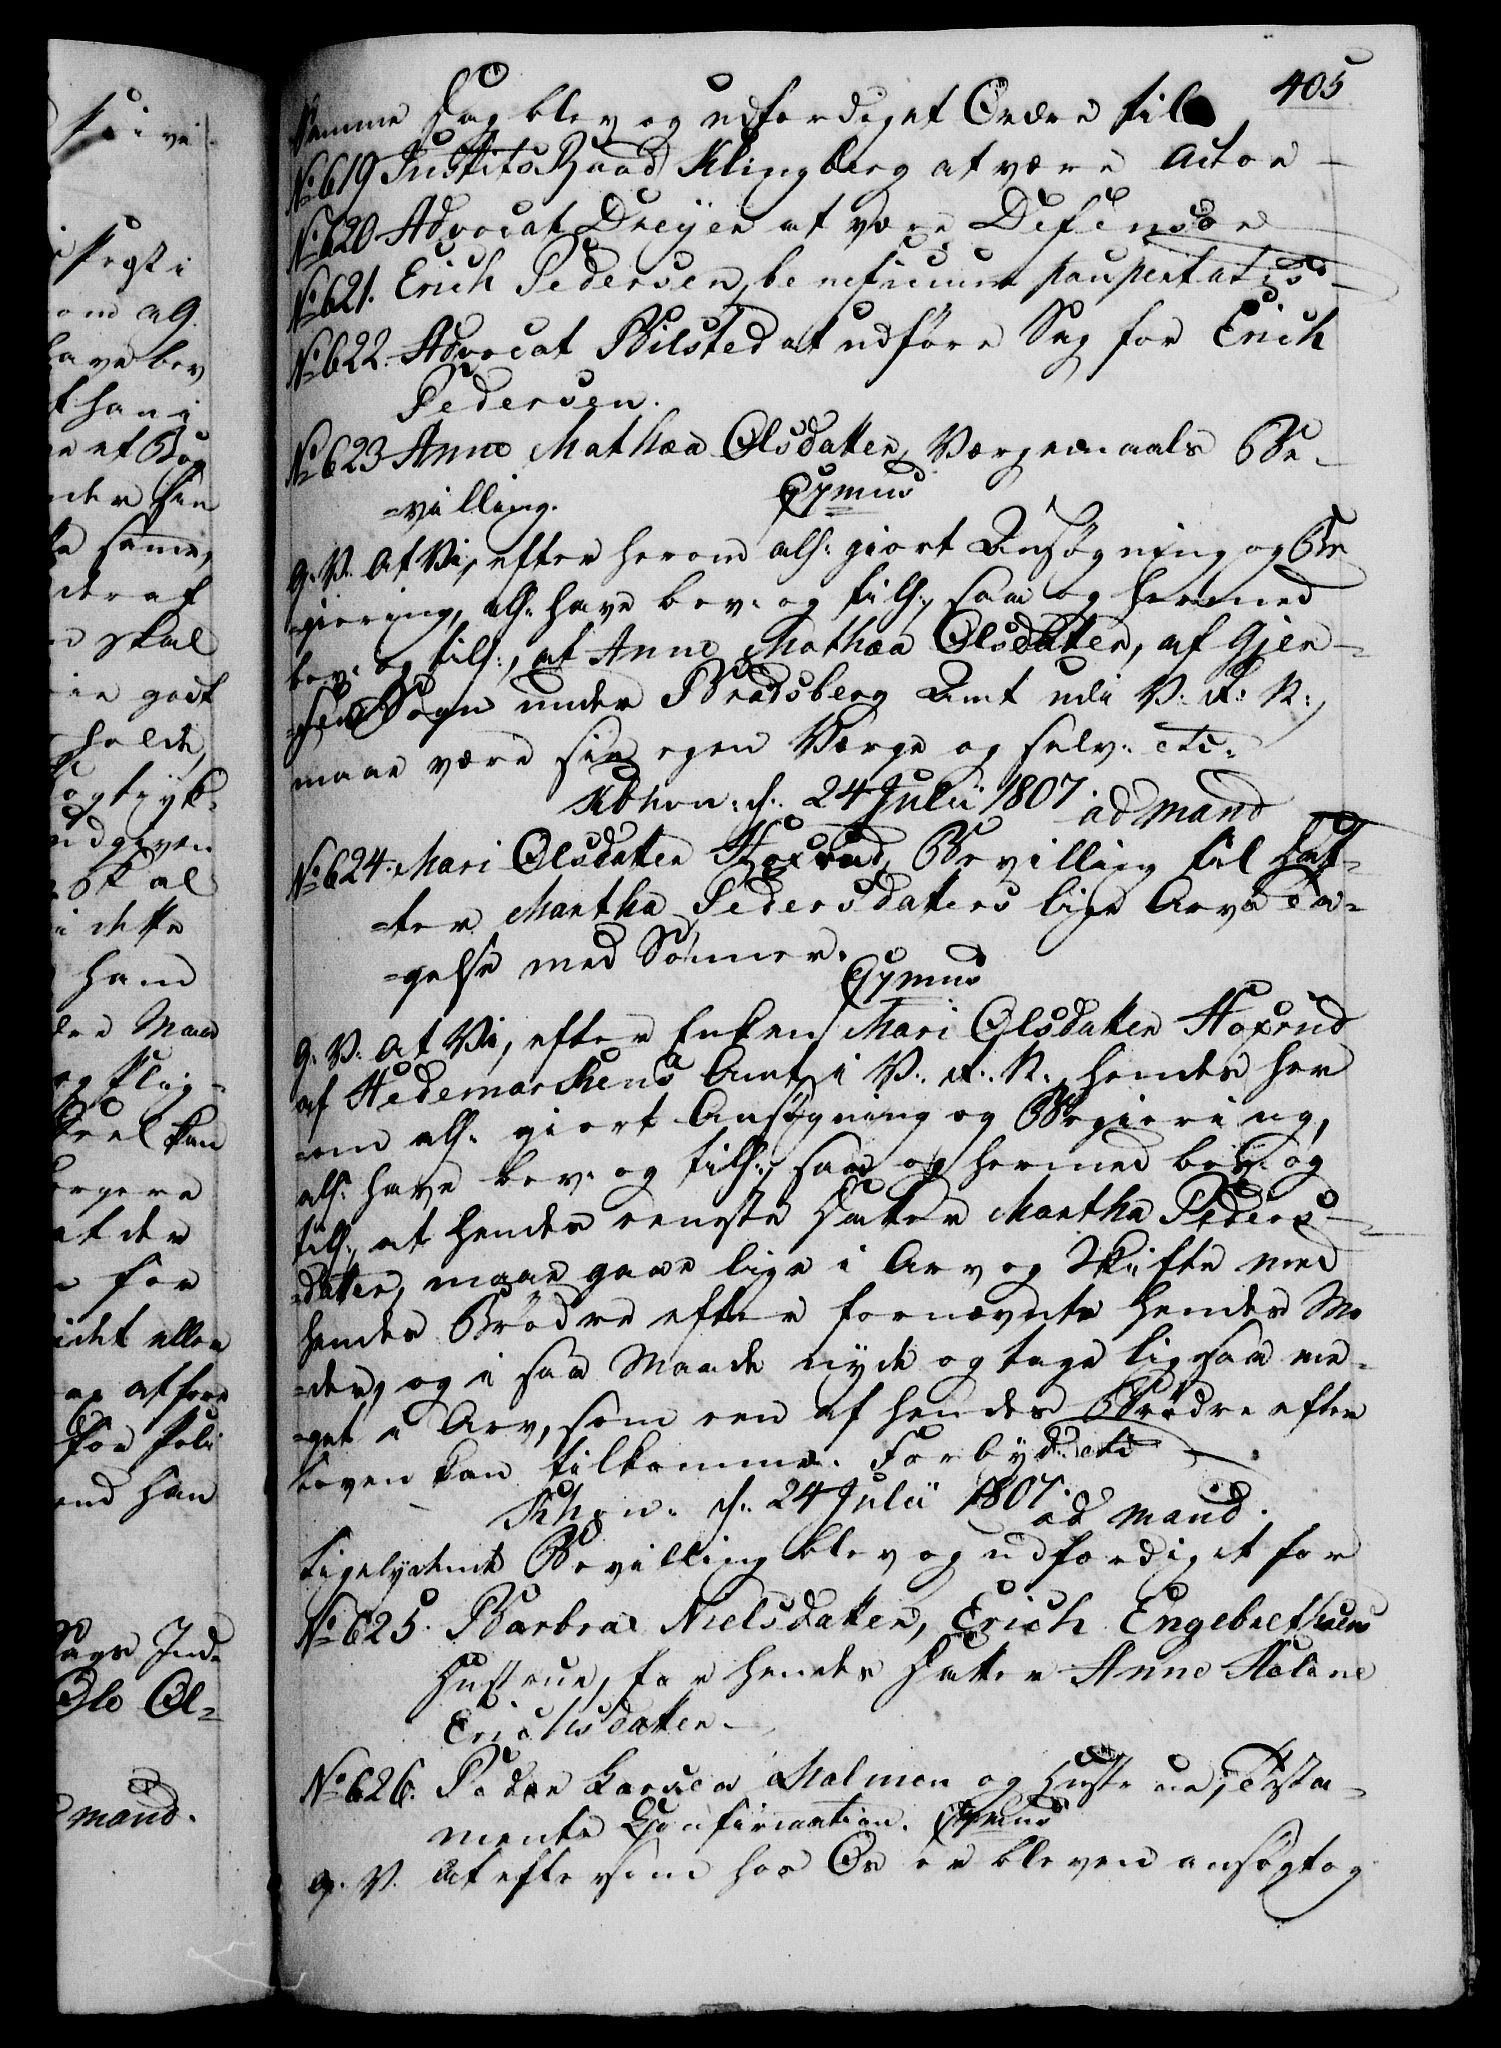 405
Samme Dag blev og udfærdiget Ordre til
No 619 Justits Raad Klingberg at være Actor
No 620 Advocat Dreyer at være Defensor
No 621. Erich Pedersen, beneficium paupertatis
No 622. Advocat Bilsted at udföre Sag for Erich
Pedersen.
No 623 Anne Mathæa Olsdatter, Værgemaals Be-
=villing. Cymus
G. V. At Vi, efter herom all: giort Ansøgning og Be
=giering, all: have bev: og till:, saa og hermed
bev: og till:, at Anne Mathæa Olsdatter, af Gjer-
=pen Sogn under Bradsberg Amt udi V. R: N:,
maae være sin egen Værge og selv. etc.
Kbhvn: d: 24 Julii 1807. ad mand
No 624. Mari Olsdatter Hoxrud, Bevilling til Dat-
=ter Martha Pedersdatters lige Arve Ta-
=gelse med Sönner. Cymus
G. V. At Vi, efter Enken Mari Olsdatter Hoxrud
af Hedemarkens Amt i V. R. N. hendes her
=om all: giort Ansøgning og Begiering,
all: have bev: og till:, saa og hermed bev: og
till:, at hendes eeneste Datter Martha Peders-
=datter, maae gaae lige i Arv og Skifte med
hendes Brödre efter fornævnte hendes Mo
=der, og i saa Maade nyde og tage ligesaa me-
=get i Arv, som een af hendes Brödre efter
Loven kan tilkomme. Forbyd: etc
Kbhvn: d: 24 Julii 1807. ad mand.
Ligelydende Bevilling blev og udfærdiget for
No 625. Barbrae Nielsdatter, Erich Engebrethsens
Hustrue, for hendes Datter Anne Helene
Erichsdatter.
No 626. Peder Larsen Malmen og Hustrue, Testa-
mente Confirmation. Cymus
G. V. At eftersom hos Os er bleven ansögt og